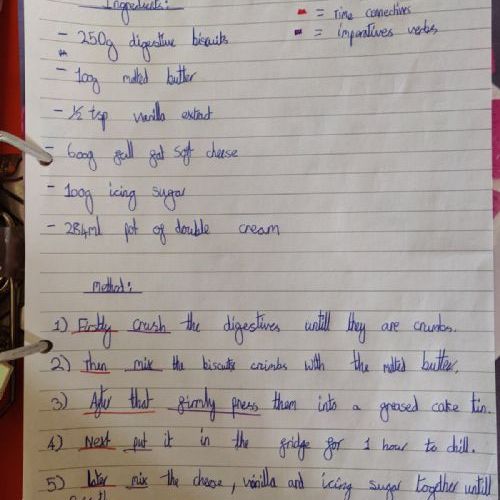 Ingredients:
= Time connectives
= imperatives verbs
- 250g digestive biscuits
- 100g melted butter
- ½ tsp vanilla extract
- 600g full fat soft cheese
- 100g icing sugar
- 284ml pot of double cream
Method:
1) Firstly crush the digestives untill they are crumbs.
2) Then mix the biscuits crimbs with the melted butter.
3) After that firmly press them into a greased cake tin.
4) Next put it in the fridge for 1 hour to chill.
5) Later mix the cheese, vanilla and icing sugar together untill